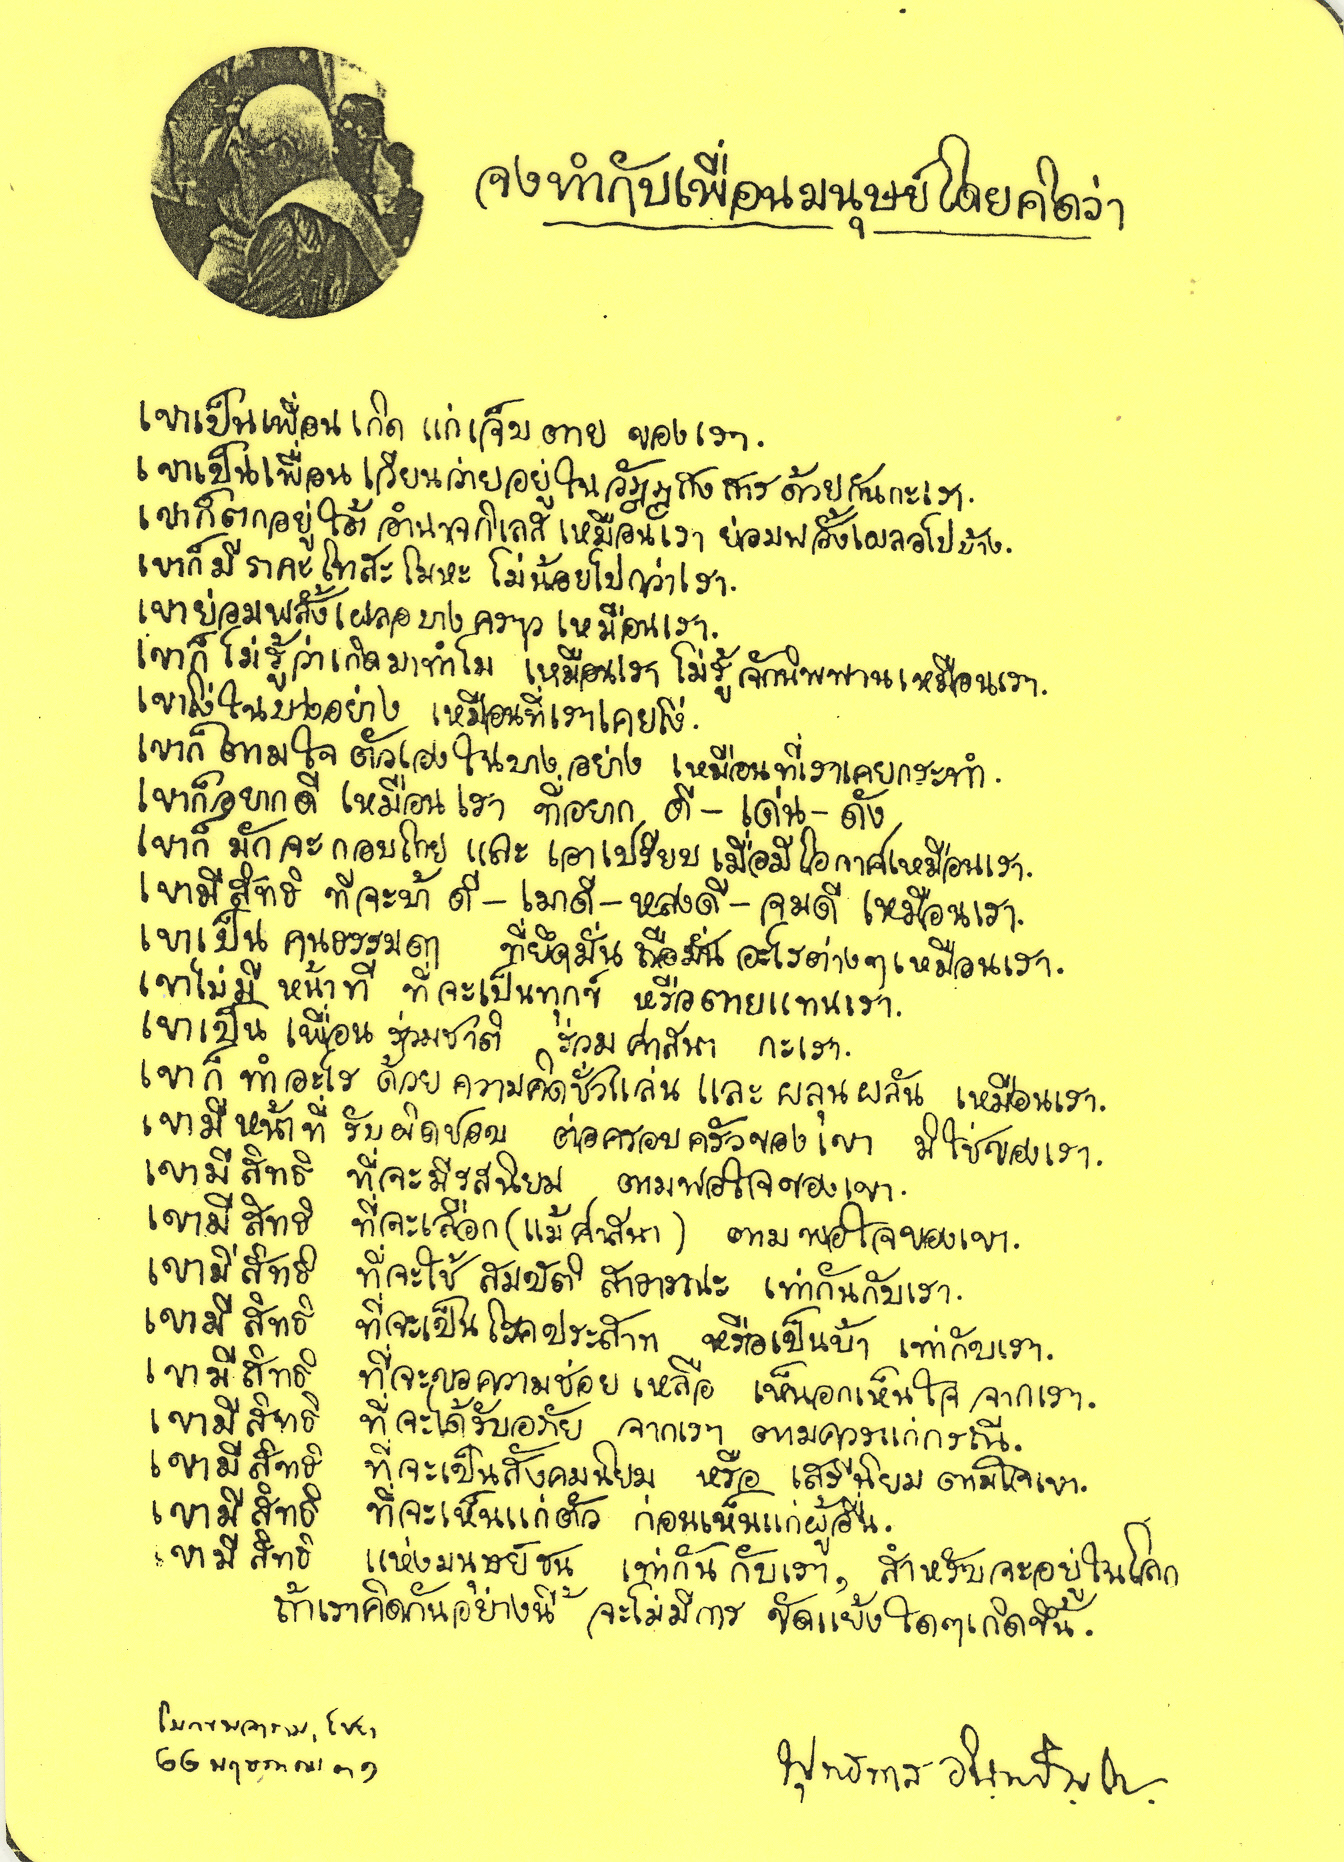 จงทำกับเพื่อนมนุษย์โดยคิดว่า
เขาเป็นเพื่อน เกิด แก่ เจ็บ ตาย ของเรา.
เขาเป็นเพื่อน เวียนว่ายอยู่ใน วัฏฏสงสาร ด้วยกันกะเรา.
เขาก็ตกอยู่ใต้ อำนาจกิเลส เหมือนเรา ย่อมพลั้งเผลอไปบ้าง.
เขาก็มี ราคะ โทสะ โมหะ ไม่น้อยไปกว่าเรา.
เขาย่อมพลั้งเผลอบางคราว เหมือนเรา.
เขาก็ ไม่รู้ว่าเกิดมาทำไม เหมือนเรา ไม่รู้จักนิพพานเหมือนเรา.
เขาโง่ในบางอย่าง เหมือนที่เราเคยโง่.
เขาก็ตามใจ ตัวเองในบางอย่าง เหมือนที่เราเคยกระทำ.
เขาก็อยากดี เหมือนเรา ที่อยาก ดี - เด่น - ดัง
เขาก็ มักจะกอบโกย และ เอาเปรียบ เมื่อมีโอกาศเหมือนเรา.
เขามีสิทธิ ที่จะบ้า ดี - เมาดี - หลงดี - จมดี เหมือนเรา.
เขาเป็น คนธรรมดา ที่ยึดมั่น ถือมั่น อะไรต่างๆเหมือนเรา.
เขาไม่มี หน้าที่ ที่จะเป็นทุกข์ หรือตายแทนเรา.
เขาเป็น เพื่อน ร่วมชาติ ร่วมศาสนา กะเรา.
เขาก็ ทำอะไร ด้วย ความคิดชั่วแล่น และ ผลุนผลัน เหมือนเรา.
เขามีหน้าที่ รับผิดชอบ ต่อครอบครัวของเขา มิใช่ของเรา.
เขามีสิทธิ ที่จะมีรสนิยม ตามพอใจของเขา.
เขามีสิทธิ ที่จะเลือก (แม้ศาสนา) ตามพอใจของเขา.
เขามีสิทธิ ที่จะใช้ สมบัติ สาธารณะ เท่ากันกับเรา.
เขามีสิทธิ ที่จะเป็นโรคประสาท หรือเป็นบ้า เท่ากับเรา.
เขามีสิทธิ ที่จะขอความช่วยเหลือ เห็นอกเห็นใจ จากเรา.
เขามีสิทธิ ที่จะได้รับอภัย จากเรา ตามควรแก่กรณี.
เขามีสิทธิ ที่จะเป็นสังคมนิยม หรือ เสรีนิยม ตามใจเขา.
เขามีสิทธิ ที่จะเห็นแก่ตัว ก่อนเห็นแก่ผู้อื่น.
เขามีสิทธิ แห่งมนุษย์ชน เท่ากันกับเรา, สำหรับจะอยู่ในโลก
ถ้าเราคิดกันอย่างนี้ จะไม่มีการ ขัดแย้งใดๆเกิดขึ้น.
โมกขพลาราม, ไชยา
๒๒ พฤษภาคม ๓๑
พุทธทาส อินฺทปญฺโญ.